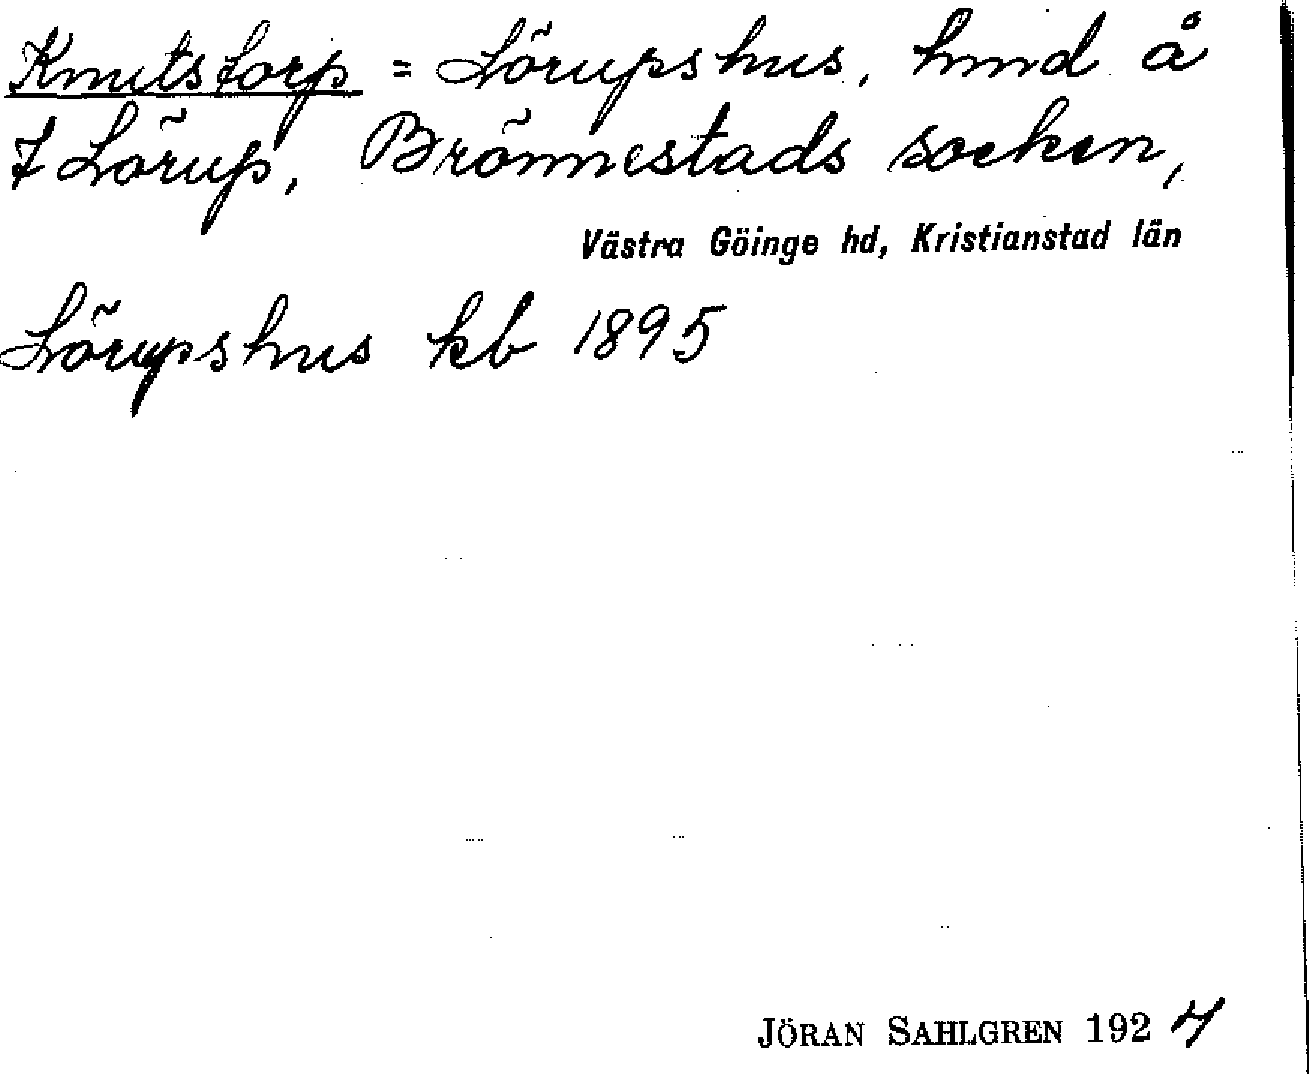 Knutstorp = Lörupshus, hmd å
7 Lörup, Brönnestads socken,
Västra Göinge hd, Kristianstad län
Lörupshus kb 1895
JÖRAN SAHLGREN 1924